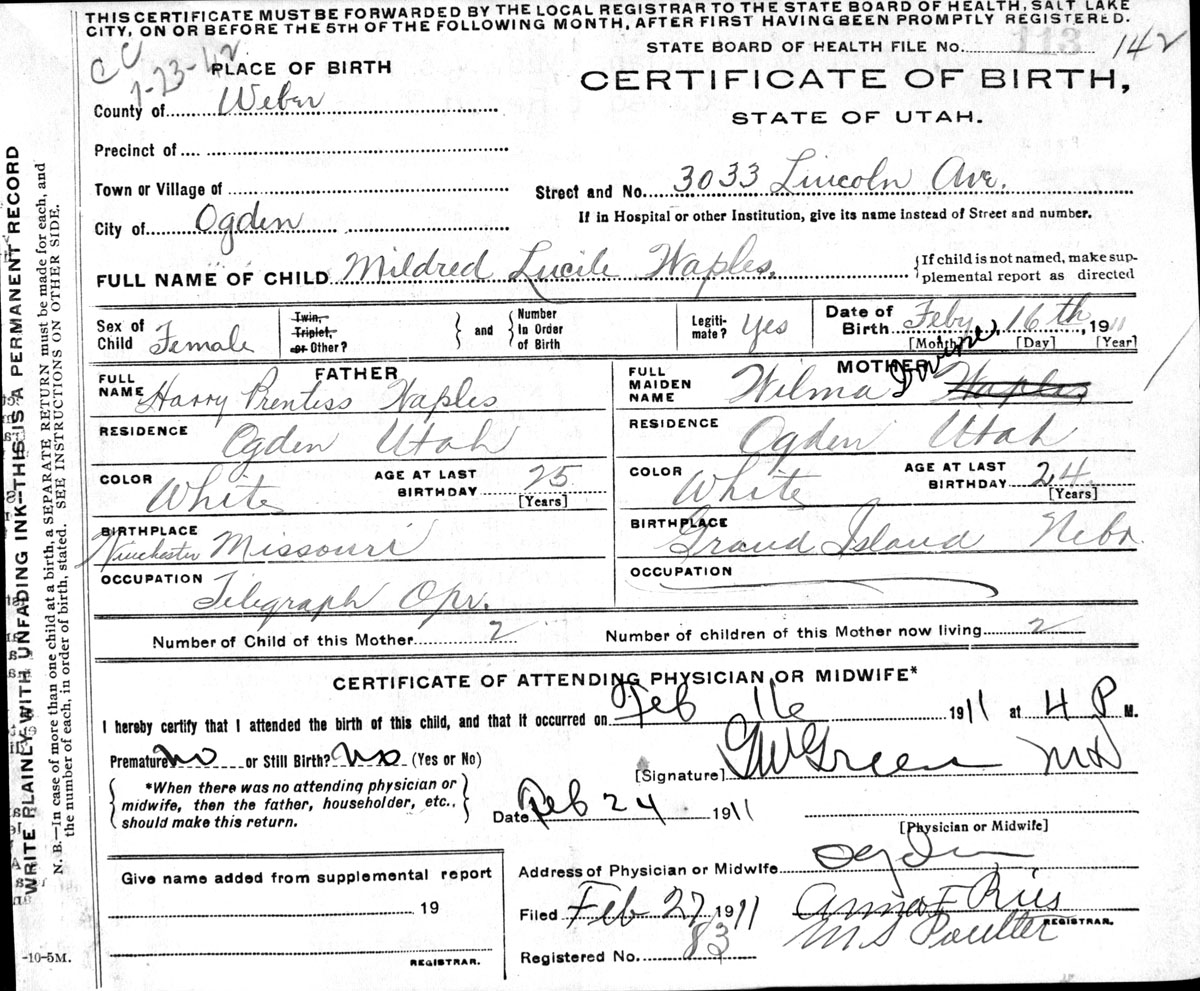 THIS CERTIFICATE MUST BE FORWARDED BY THE LOCAL REGISTRAR TO THE STATE BOARD OF HEALTH, SALT LAKE
CITY, ON OR BEFORE THE 5TH OF THE FOLLOWING MONTH, AFTER FIRST HAVING BEEN PROMPTLY REGISTERED.
STATE BOARD OF HEALTH FILE No. 113 142
CC
1-23-42
PLACE OF BIRTH
CERTIFICATE OF BIRTH,
STATE OF UTAH.
County of Weber
Precinct of
Town or Village of
Street and No. 3033 Lincoln Ave.
City of Ogden
If in Hospital or other Institution, give its name instead of Street and number.
FULL NAME OF CHILD Mildred Lucile Waples.
If child is not named, make sup-
plemental report as directed
Sex of Child Female
Twin, Triplet, or Other?
and
Number In Order of Birth
Legiti-mate? Yes
Date of Birth Feby 16th, 1911
[Month] [Day] [Year]
FATHER
FULL NAME Harry Prentiss Waples
RESIDENCE Ogden Utah
COLOR White
AGE AT LAST BIRTHDAY 25
[Years]
BIRTHPLACE Winchester Missouri
OCCUPATION Telegraph Opr.
MOTHER
FULL MAIDEN NAME Wilma Waples
RESIDENCE Ogden Utah
COLOR White
AGE AT LAST BIRTHDAY 24
[Years]
BIRTHPLACE Grand Island Nebr.
OCCUPATION
Number of Child of this Mother 2
Number of children of this Mother now living 2
CERTIFICATE OF ATTENDING PHYSICIAN OR MIDWIFE*
I hereby certify that I attended the birth of this child, and that it occurred on Feb 16 1911 at 4 P M.
Premature No or Still Birth? No (Yes or No)
[Signature] GW Green MD
*When there was no attending physician or
midwife, then the father, householder, etc.,
should make this return.
Date Feb 24 1911
[Physician or Midwife]
Give name added from supplemental report
19
REGISTRAR.
Address of Physician or Midwife Ogden
Filed Feb 27 1911
REGISTRAR.
M S Poulter
Registered No. 83
WRITE PLAINLY WITH UNFADING INK—THIS IS A PERMANENT RECORD
N. B.—In case of more than one child at a birth, a SEPARATE RETURN must be made for each, and
the number of each, in order of birth, stated. SEE INSTRUCTIONS ON OTHER SIDE.
-10-5M.